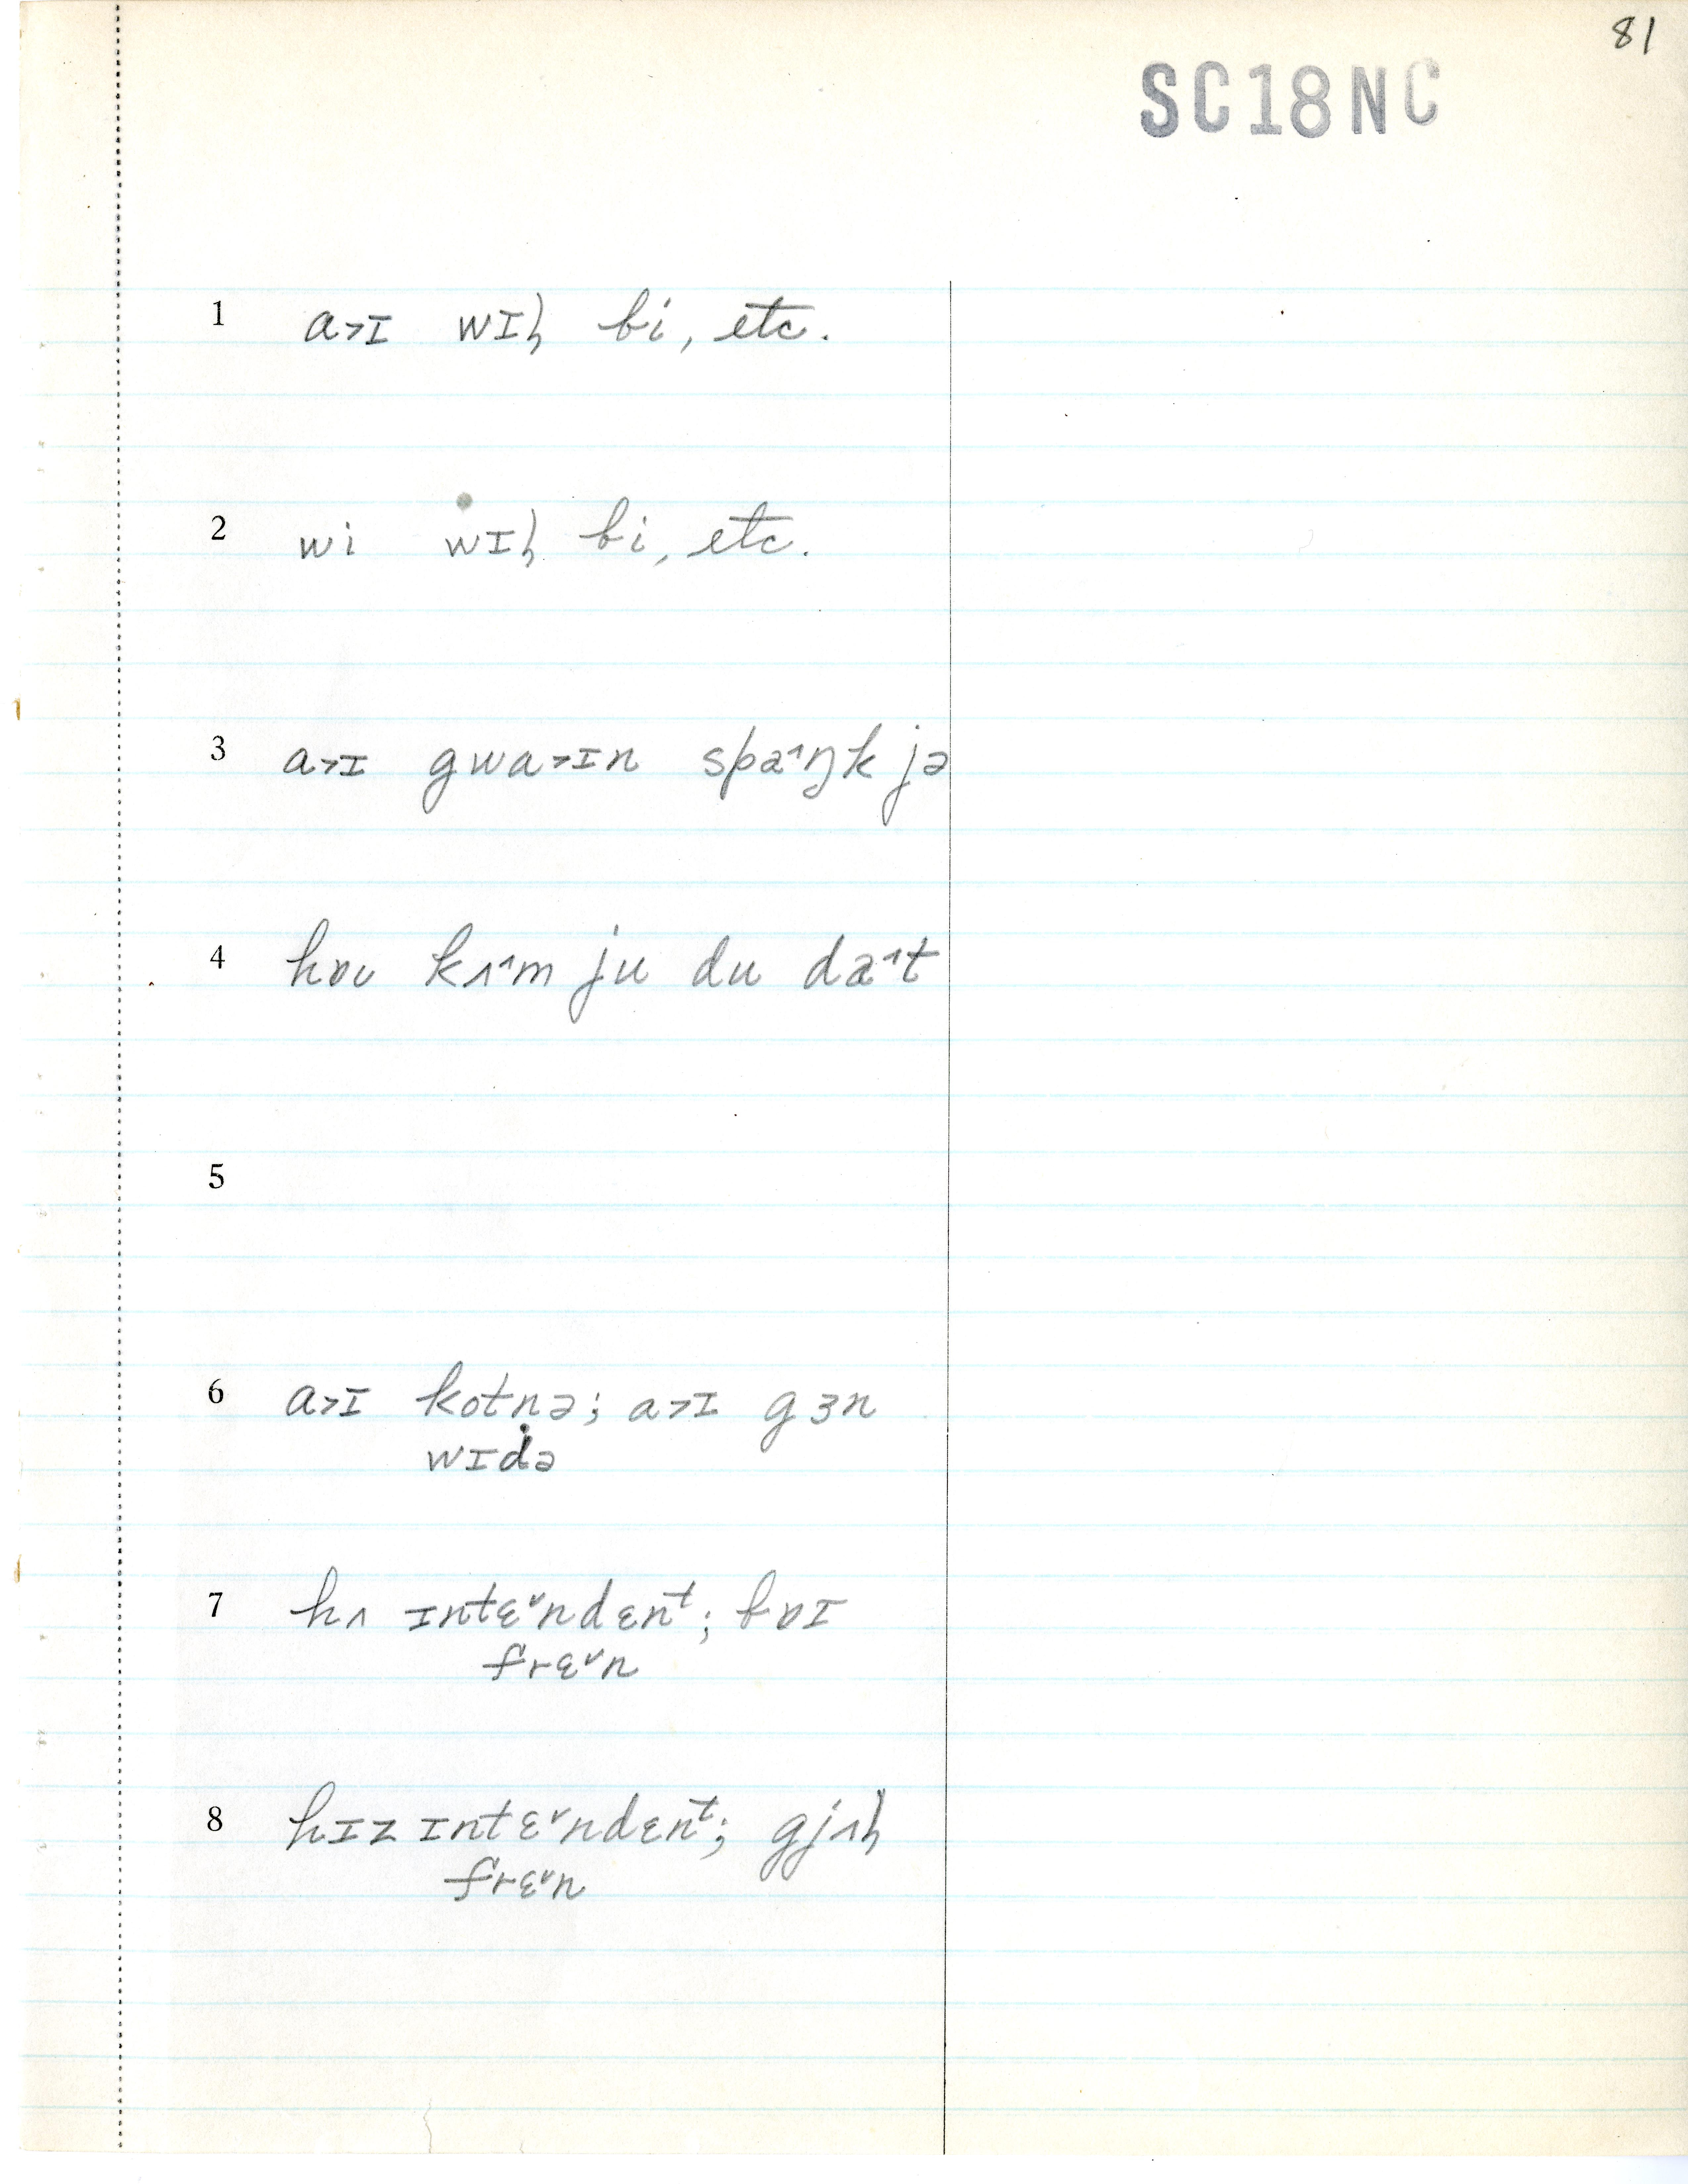 81
SC18NC
1 a˃ɪ wɪɫ bi, etc.
2 wi wɪɫ bi, etc.
3 a˃ɪ gwa˃ɪn spa˄ŋk jə
4 hɒʊ kʌ˄m ju du da˄t
5
6 a˃ɪ kotnə; a˃ɪ gɜn
wɪdə
7 hʌ ɪntɛ˅ndɛnᵗ; bɒɪ
frɛ˅n
8 hɪz ɪntɛ˅ndɛnᵗ; gjʌɫ
frɛ˅n